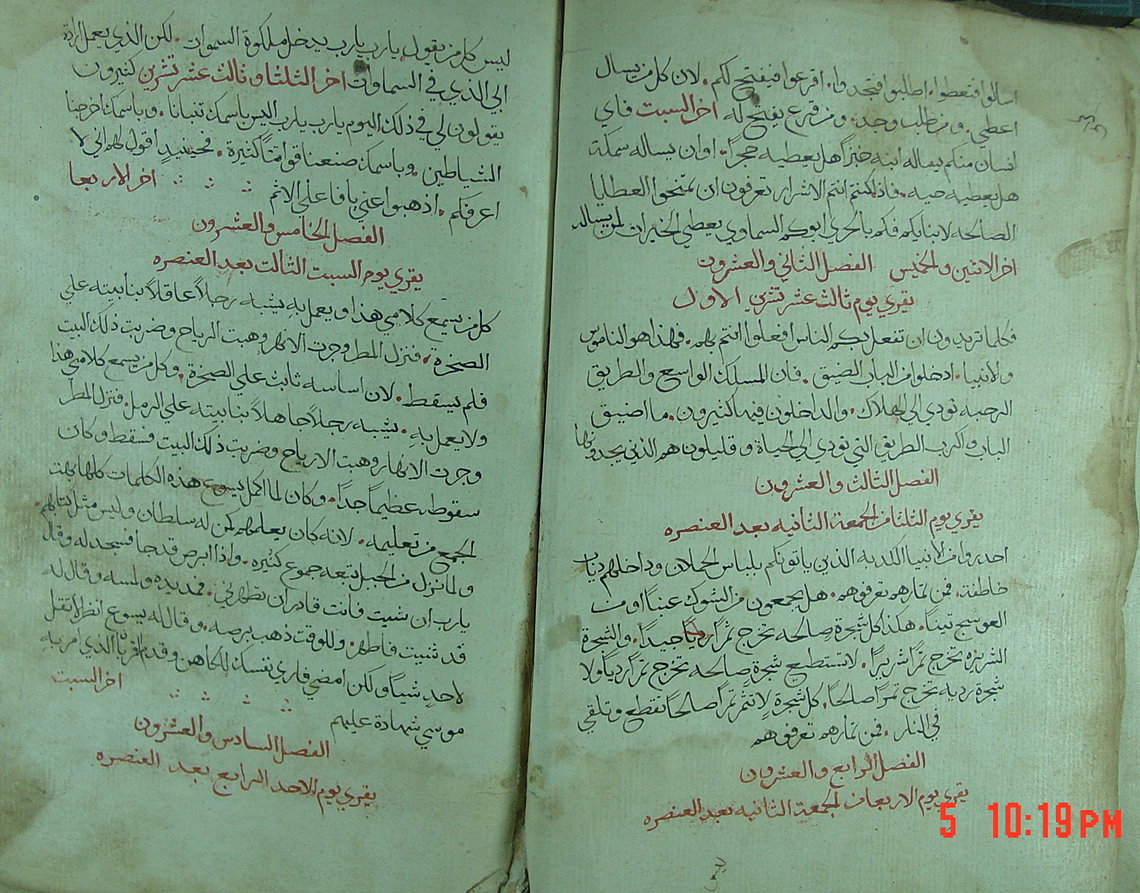 اسالوا فتعطوا. اطلبوا فتجدوا. اقرعوا فيفتح لكم. لان كل من يسال
اعطي. ومن طلب وجد. ومن قرع يفتح له اخر السبت فاي
انسان منكم يساله ابنه خبزًا هل يعطيه حجرًا. او ان يساله سمكة
هل يعطيه حيه. فاذا كنتم انتم الاشرار تعرفون ان تمنحوا العطايا
الصالحه لابنايكم فكم بالحري ابوكم السماوي يعطي الخيرات لمن يساله
اخر الاثنين والخميس الفصل الثاني والعشرون
يقري يوم ثالث عشر تشرين الاول
فكلما تريدون ان تفعل بكم الناس افعلوا انتم بهم. فهذا هو الناموس
والانبيا. ادخلوا من الباب الضيق. فان المسلك الواسع والطريق
الرحبه تودي الى الهلاك. والداخلون فيها كثيرون. ما اضيق
الباب واكرب الطريق التي تودي الى الحياة وقليلون هم الذين يجدونها
الفصل الثالث والعشرون
يقري يوم الثلثا من الجمعة الثانيه بعد العنصره
احدروا من الانبيا الكدبه الدين ياتونكم بلباس الحملان وداخلهم دياب
خاطفة. فمن ثمارهم تعرفوهم. هل يجمعون من الشوك عنبًا او من
العوسج تينًا. هكذا كل شجرة صالحه تخرج ثمرًا جيدًا. والشجرة
الشريره تخرج ثمرًا شريرًا. لا تستطيع شجرة صالحه تخرج ثمرًا رديًا ولا
شجرة رديه تخرج ثمرًا صالحًا. كل شجرة لا تثمر ثمرًا صالحًا تقطع وتلقي
في النار. فمن ثمارهم تعرفوهم
الفصل الرابع والعشرون
يقري يوم الاربعا من الجمعة الثانيه بعد العنصره
5 10:19 PM
ليس كل من يقول يارب يارب يدخل ملكوة السموات. لكن الذي يعمل ارادة
ابي الذي في السماوات اخر الثلثا وثالث عشر تشرين كثيرون
يقولون لي في ذلك اليوم يارب يارب اليس باسمك تنبانا. وباسمك اخرجنا
الشياطين وباسمك صنعنا قواتًا كثيرة. فحينيدٍ اقول لهم اني لا
اعرفكم. اذهبوا عني يا فاعلي الاثم اخر الاربعا
الفصل الخامس والعشرون
يقري يوم السبت الثالث بعد العنصره
كل من يسمع كلامي هذا ويعمل به يشبه رجلاً عاقلاً بنا بيته علي
الصخره. فنزل المطر وجرت الانهر وهبت الرياح وضربت ذلك البيت
فلم يسقط. لان اساسه ثابت علي الصخرة. وكل من يسمع كلامي هذا
ولا يعمل به. يشبه رجلاً جاهلاً بنا بيته علي الرمل. فنزل المطر
وجرت الانهار وهبت الارياح وضربت ذلك البيت فسقط وكان
سقوطه عظيمًا جدًا. وكان لما اكمل يسوع هذه الكلمات كلها بهت
الجمع من تعليمه. لانه كان يعلمهم كمن له سلطان وليس مثل كتابهم.
ولما نزل من الجبل تبعه جموع كثيره. واذا ابرص قد جا فسجد له وقال
يارب ان شيت فانت قادر ان تطهرني. فمد يده ولمسه وقال له
قد شيت فاطهر. وللوقت ذهب برصه. وقال له يسوع انظر لا تقل
لاحدٍ شيًا ولكن امضي فاري نفسك للكاهن وقدم القربان الذي امر به
موسي شهادة عليهم اخر السبت
الفصل السادس والعشرون
يقري يوم الاحد الرابع بعد العنصره